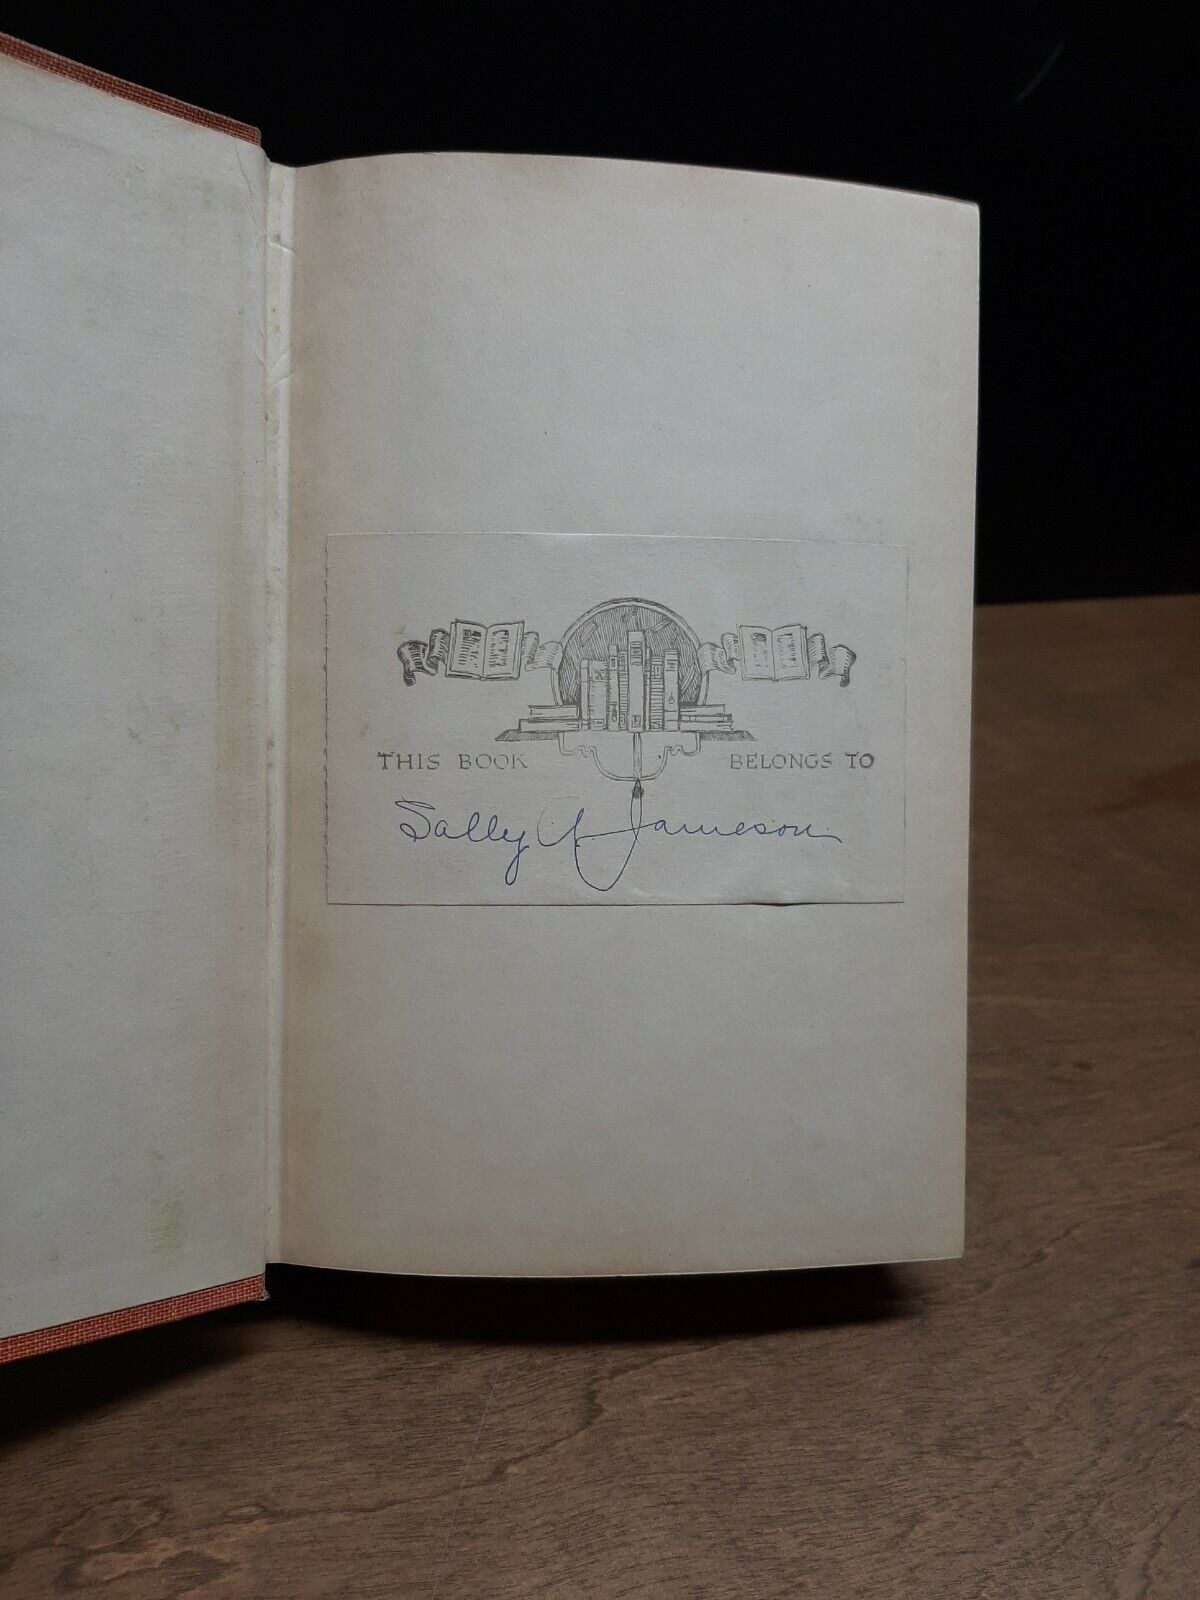 THIS BOOK BELONGS TO
Sally A. Jameson